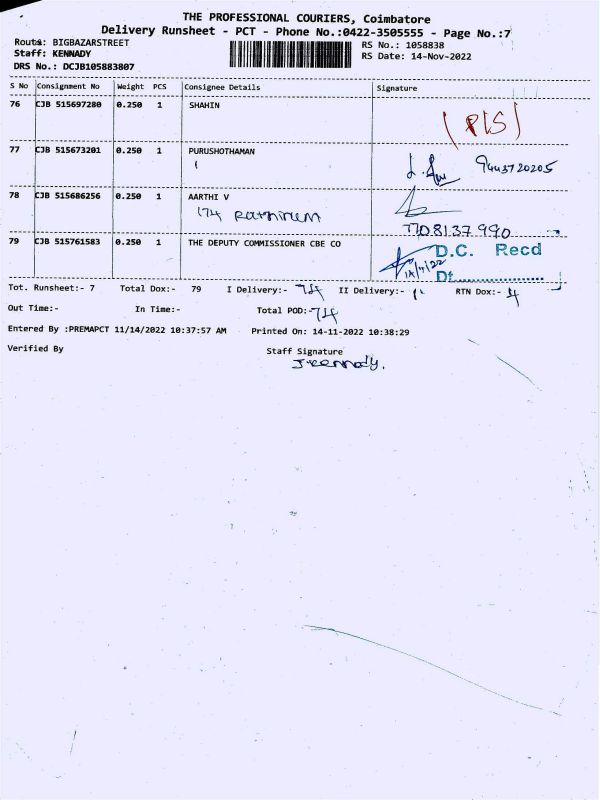 THE PROFESSIONAL COURIERS, Coimbatore
Delivery Runsheet - PCT - Phone No.:0422-3505555 - Page No.:7
Route: BIGBAZARSTREET
RS No.: 1058838
Staff: KENNADY
RS Date: 14-Nov-2022
DRS No.: DCJB105883807
S No Consignment No Weight PCS Consignee Details Signature
76 CJB 515697280 0.250 1 SHAHIN
(P/S)
77 CJB 515673201 0.250 1 PURUSHOTHAMAN
9443720205
78 CJB 515686256 0.250 1 AARTHI V
174 Rathinum
7708137990
79 CJB 515761583 0.250 1 THE DEPUTY COMMISSIONER CBE CO
D.C. Recd
14/11/22
Dt..................
Tot. Runsheet:- 7 Total Dox:- 79 I Delivery:- 74 II Delivery:- RTN Dox:- 4
Out Time:- In Time:- Total POD:- 74
Entered By :PREMAPCT 11/14/2022 10:37:57 AM Printed On: 14-11-2022 10:38:29
Verified By Staff Signature
J Kennady.